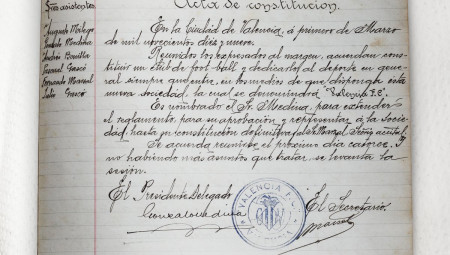 Acta de constitución.
Sres asistentes
Augusto Milego
Gonzalo Medina
Andrés Bonilla
Pascual Gascó
Fernando Marzal
Julio Gascó
En la Ciudad de Valencia, á primero de Marzo
de mil novecientos diez y nueve.
Reunidos los expresados al margen, acuerdan cons-
tituir un Club de foot-ball y dedicarlo al deporte en gene-
ral siempre que entre, en los medios de que disponga esta
nueva sociedad, la cual se denominará "Valencia F.C".
Es nombrado el Sr. Medina, para extender
el reglamento, para su aprobación y representar á la Socie-
dad, hasta su constitución definitiva, y al Sr. Marzal
Se acuerda reunirse el próximo día catorce, y
no habiendo más asuntos que tratar, se levanta la
sesión.
El Presidente Delegado
Gonzalo Medina
VALENCIA F.C.
El Secretario
Marzal